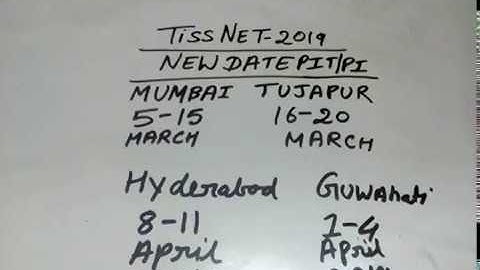 TISSNET-2019
NEW DATE PIT/PI
MUMBAI TUJAPUR
5-15 16-20
MARCH MARCH
Hyderabad GUWAHati
8-11 1-4
April April